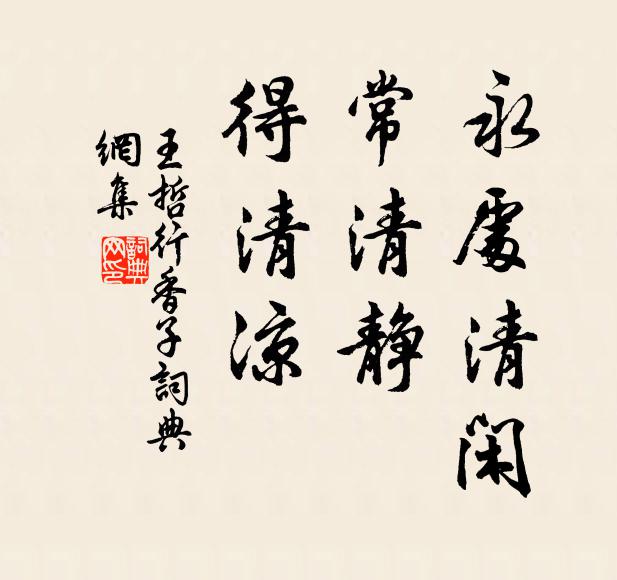 永處清閑
常清静
得清涼
王哲行香子詞典
網集
詞典网印